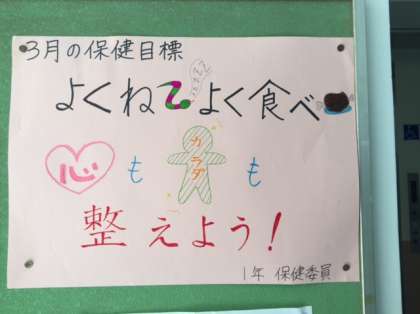 3月の保健目標
よくねてよく食べて
心もカラダも
整えよう!
1年 保健委員